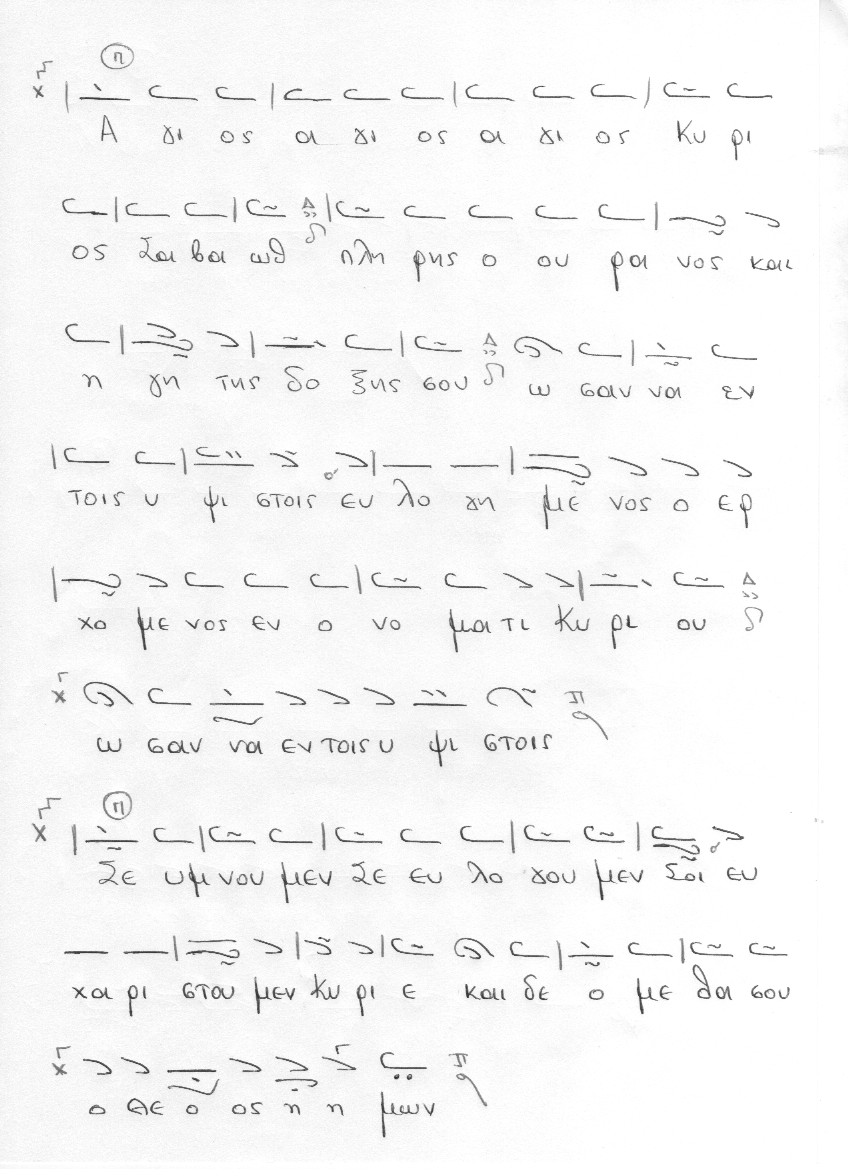 π
Α γι ος α γι ος α γι ος Κυ ρι
ος Σα βα ωθ πλη ρης ο ου ρα νος και
η γη της δο ξης σου ω σαν να εν
τοις υ ψι στοις ευ λο γη με νος ο ερ
χο με νος εν ο νο μα τι Κυ ρι ου
ω σαν να εν τοις υ ψι στοις
π
Σε υμ νου μεν Σε ευ λο γου μεν Σοι ευ
χα ρι στου μεν Κυ ρι ε και δε ο με θα σου
ο Θε ο ος η η μων